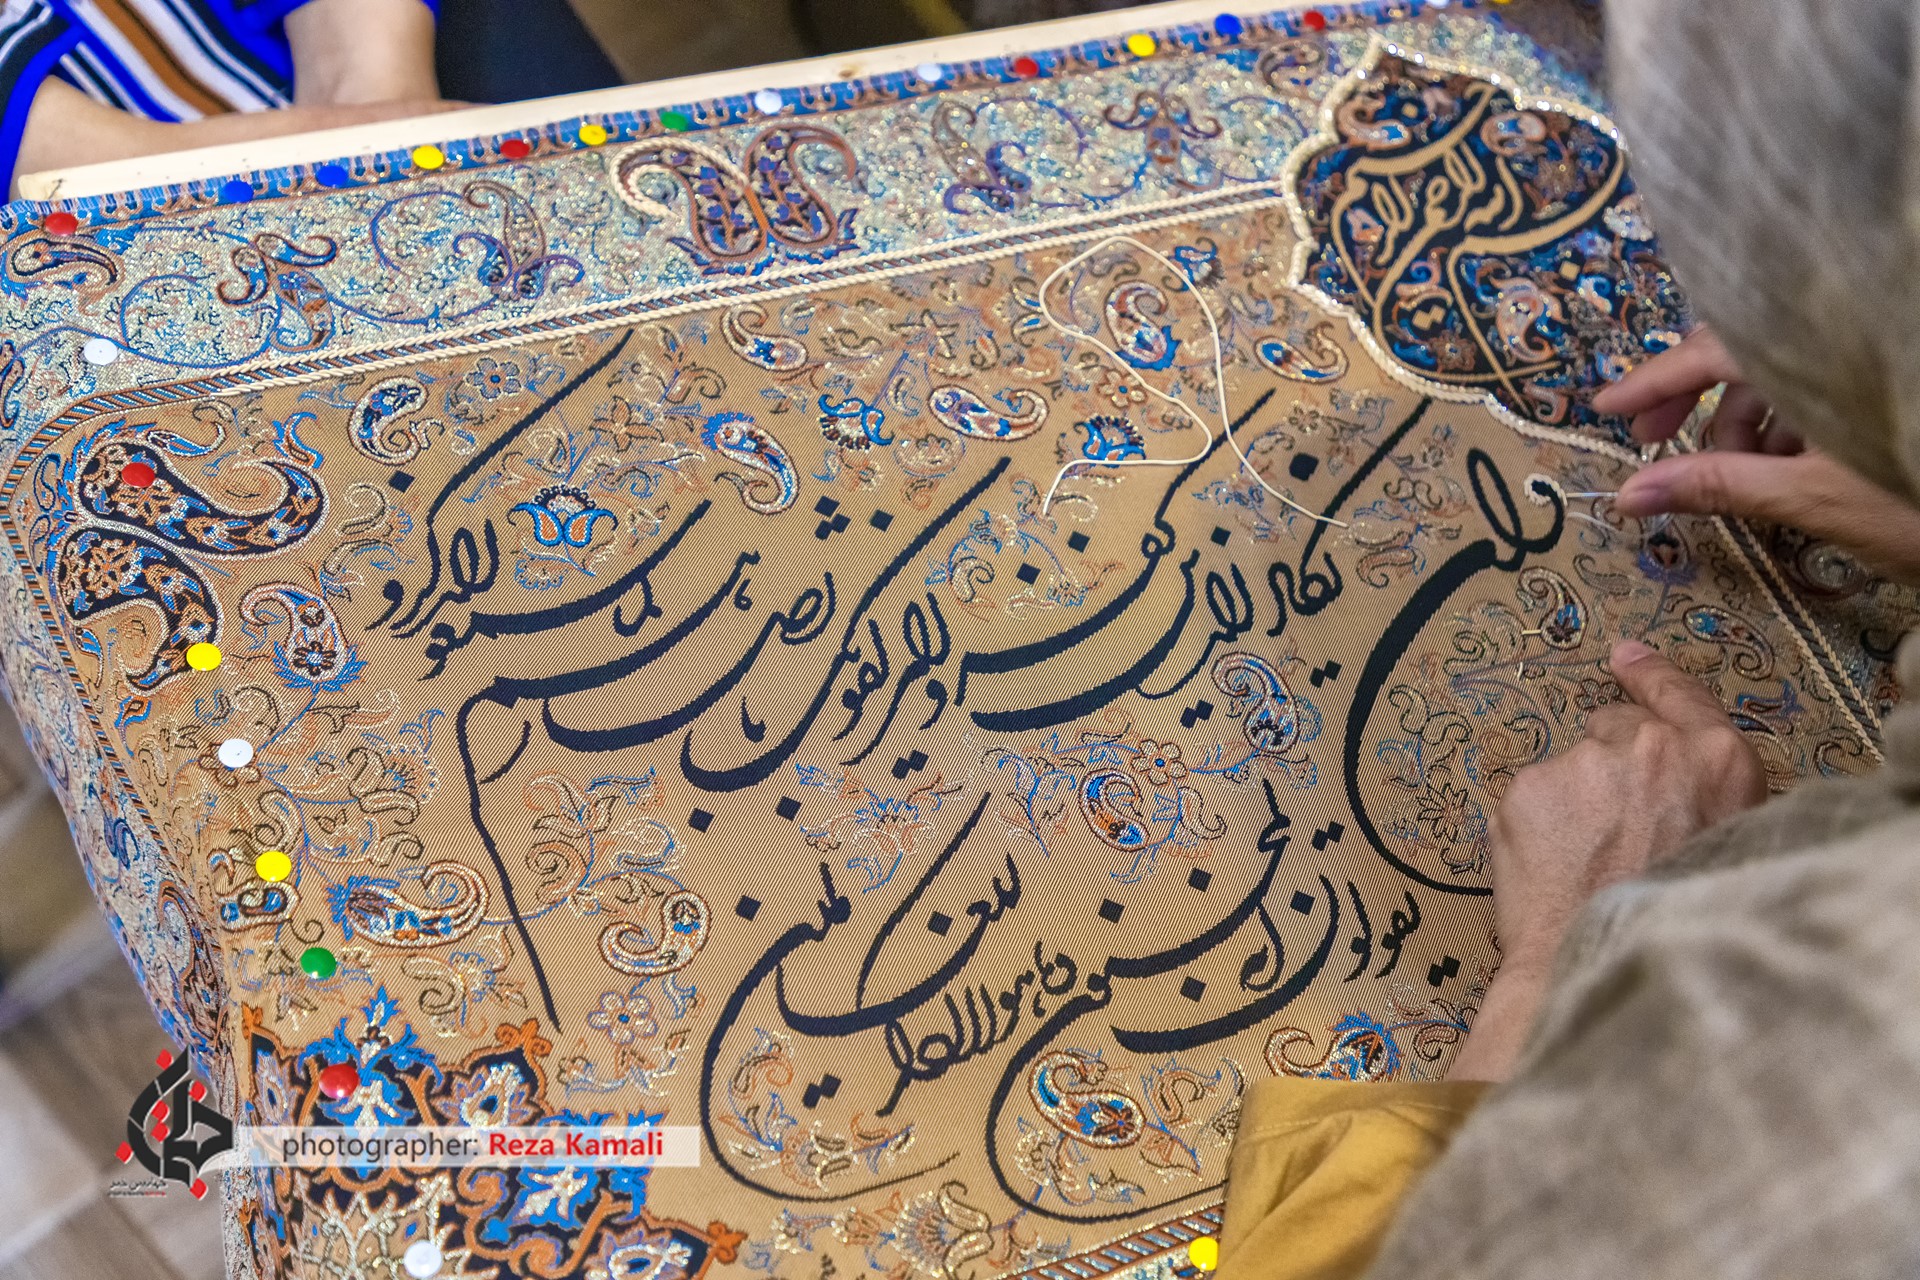 بسم الله الرحمن الرحیم
وان یکاد الذین کفروا لیزلقونک بابصارهم لما سمعوا الذکر و
یقولون انه لمجنون وما هو الا ذکر للعالمین
photographer: Reza Kamali